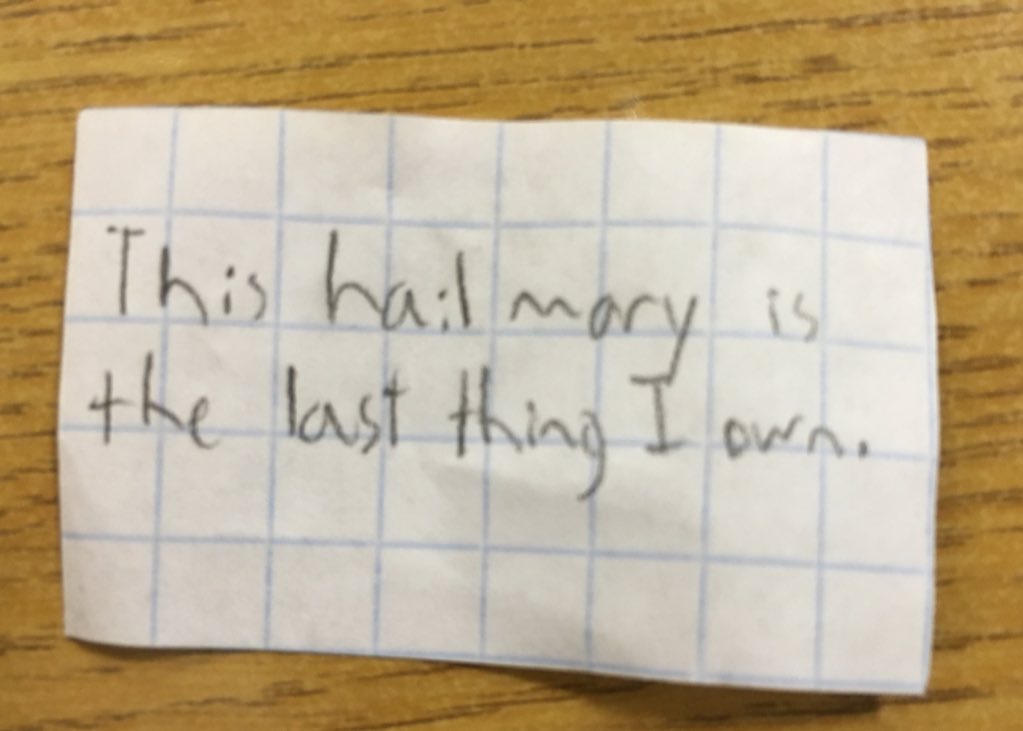 This hail mary is
the last thing I own.